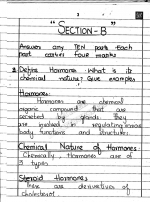 "SECTION-B"
Answer any TEN parts. Each
part carries four marks
2. Define Hormones. What is its
chemical nature? Give examples
Hormones:
Hormones are chemical
organic compound that are
secreted by glands. They
are involved in regulating
body functions and structures
Chemical Nature of Hormones:
Chemically, Hormones are of
3 types
Steroid Hormones
These are derivatives of
cholesterol